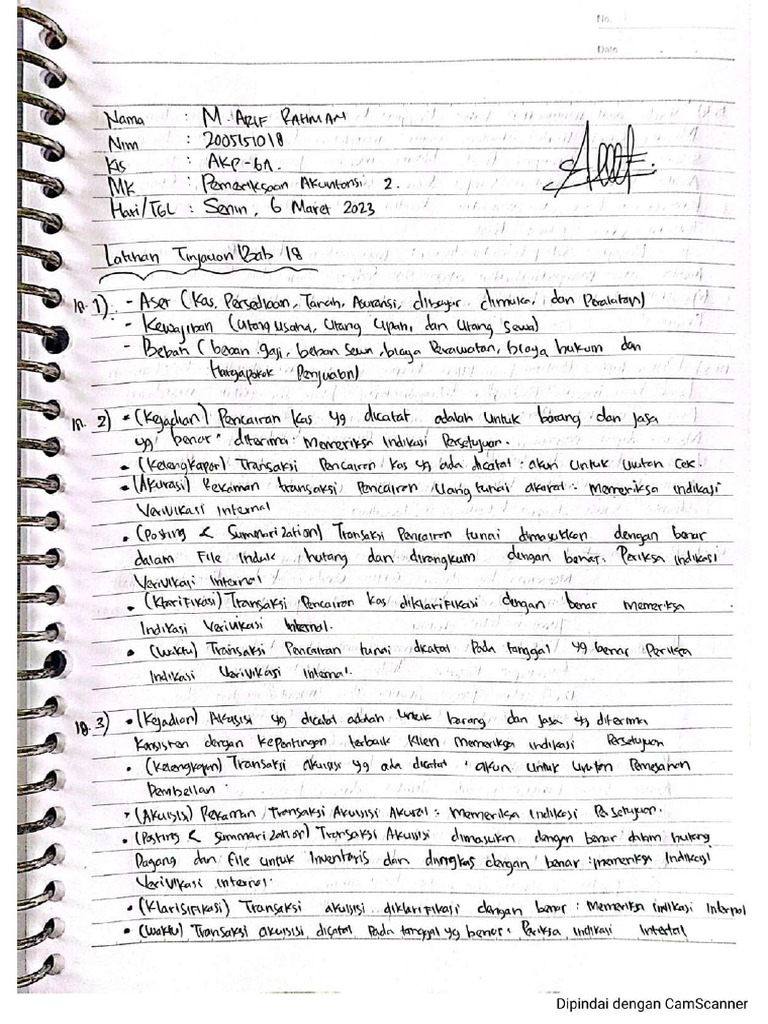 No.
Date
Nama : M. ARIF RAHMAN
Nim : 2005151018
Kls : AKP-6A.
MK : Pemeriksaan Akuntansi 2.
Hari/TGL : Senin, 6 Maret 2023
Latihan Tinjauan Bab 18
18. 1). - Aset (Kas, Persediaan, Tanah, Asuransi, dibayar dimuka, dan Peralatan)
- Kewajiban (utang usaha, utang upah, dan utang sewa)
- Beban (beban gaji, beban sewa, biaya Perawatan, biaya hukum dan
Hargapokok Penjualan)
18. 2) • (Kejadian) Pencairan kas yg dicatat adalah untuk barang dan jasa
yg benar" diterima: Memeriksa Indikasi Persetujuan.
• (Kelengkapan) Transaksi Pencairan kas yg ada dicatat: akun untuk urutan cek.
• (Akurasi) Rekaman transaksi Pencairan uang tunai akurat: Memeriksa indikasi
Verivikasi Internal
• (Posting & Summarization) Transaksi Pencairan tunai dimasukkan dengan benar
dalam File Induk hutang dan dirangkum dengan benar. Periksa Indikasi
Verivikasi Internal
• (Klarifikasi) Transaksi Pencairan kas diklarifikasi dengan benar memeriksa
Indikasi Verivikasi Internal.
• (Waktu) Transaksi Pencairan tunai dicatat Pada tanggal yg benar Periksa
Indikasi Verivikasi Internal.
18. 3) • (Kejadian) Akuisisi yg dicatat adalah untuk barang dan jasa yg diterima
Konsisten dengan kepentingan terbaik klien memeriksa indikasi Persetujuan
• (Kelengkapan) Transaksi akuisisi yg ada dicatat : akun untuk urutan Pemesanan
Pembelian.
• (Akuisisi) Rekaman Transaksi Akuisisi Akurat: Memeriksa Indikasi Persetujuan.
• (Posting & Summarization) Transaksi Akuisisi dimasukan dengan benar dalam hutang
Dagang dan File untuk Inventaris dan diringkas dengan benar: memeriksa Indikasi
Verivikasi internal.
• (Klarisifikasi) Transaksi akuisisi diklarifikasi dengan benar: Memeriksa indikasi
• (Waktu) Transaksi akuisisi dicatat Pada tanggal yg benar. Periksa Indikasi
Dipindai dengan CamScanner